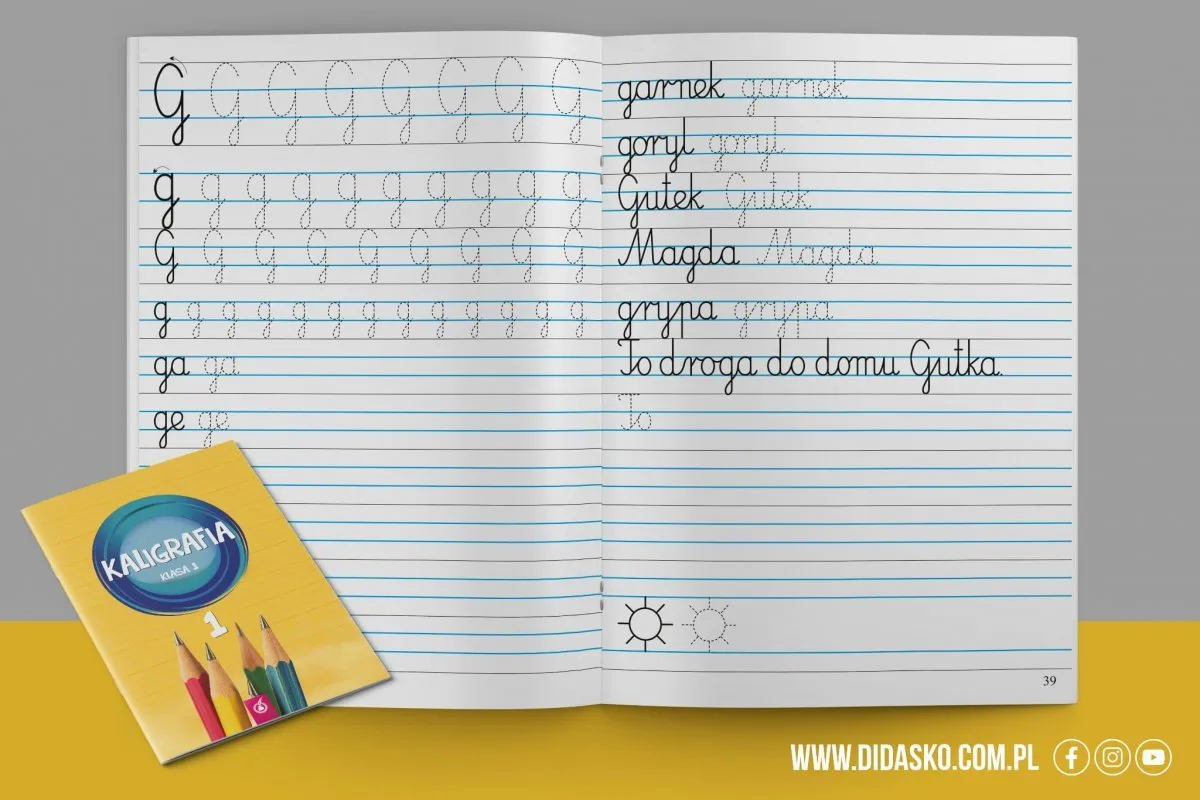 G G G G G G G G
g g g g g g g g g g
G G G G G G G G G
g g g g g g g g g g g g g
ga ga
ge ge
garnek garnek
goryl goryl
Gutek Gutek
Magda Magda
grypa grypa
To droga do domu Gutka.
To
39
KALIGRAFIA
KLASA 1
1
WWW.DIDASKO.COM.PL